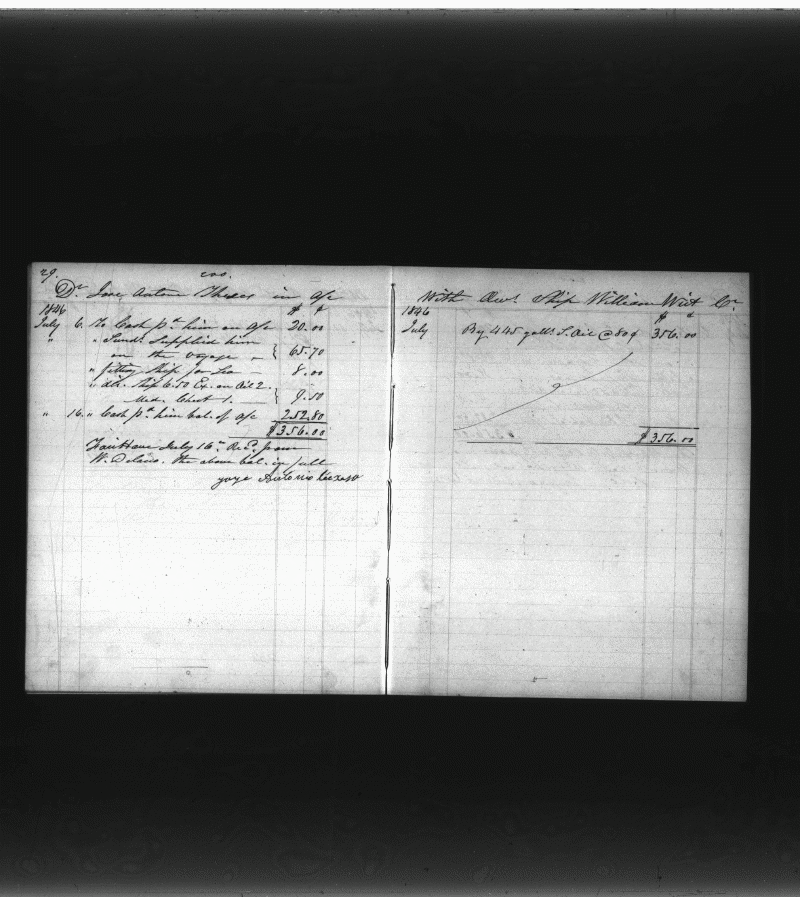 29.
Dr Jose Antone in a/c
1846 $ ¢
July 6. To Cash pd him on a/c 20.00
" " Sunds Supplied him
on the voyage " { 65.70
" fitting Ship for Sea — 8.00
" dis. Ship 6.50 Ex. on Oil 2.
Med. Chest 1. — { 9.50
" 16. " Cash pd him bal. of a/c 252.80
$356.00
Fairhaven July 16th Recd from
W. the above bal. in full
Antonio
With Ship William Wirt Cr
1846 $ ¢
July By 445 galls S. Oil @ 80¢ 356.00
$356.00